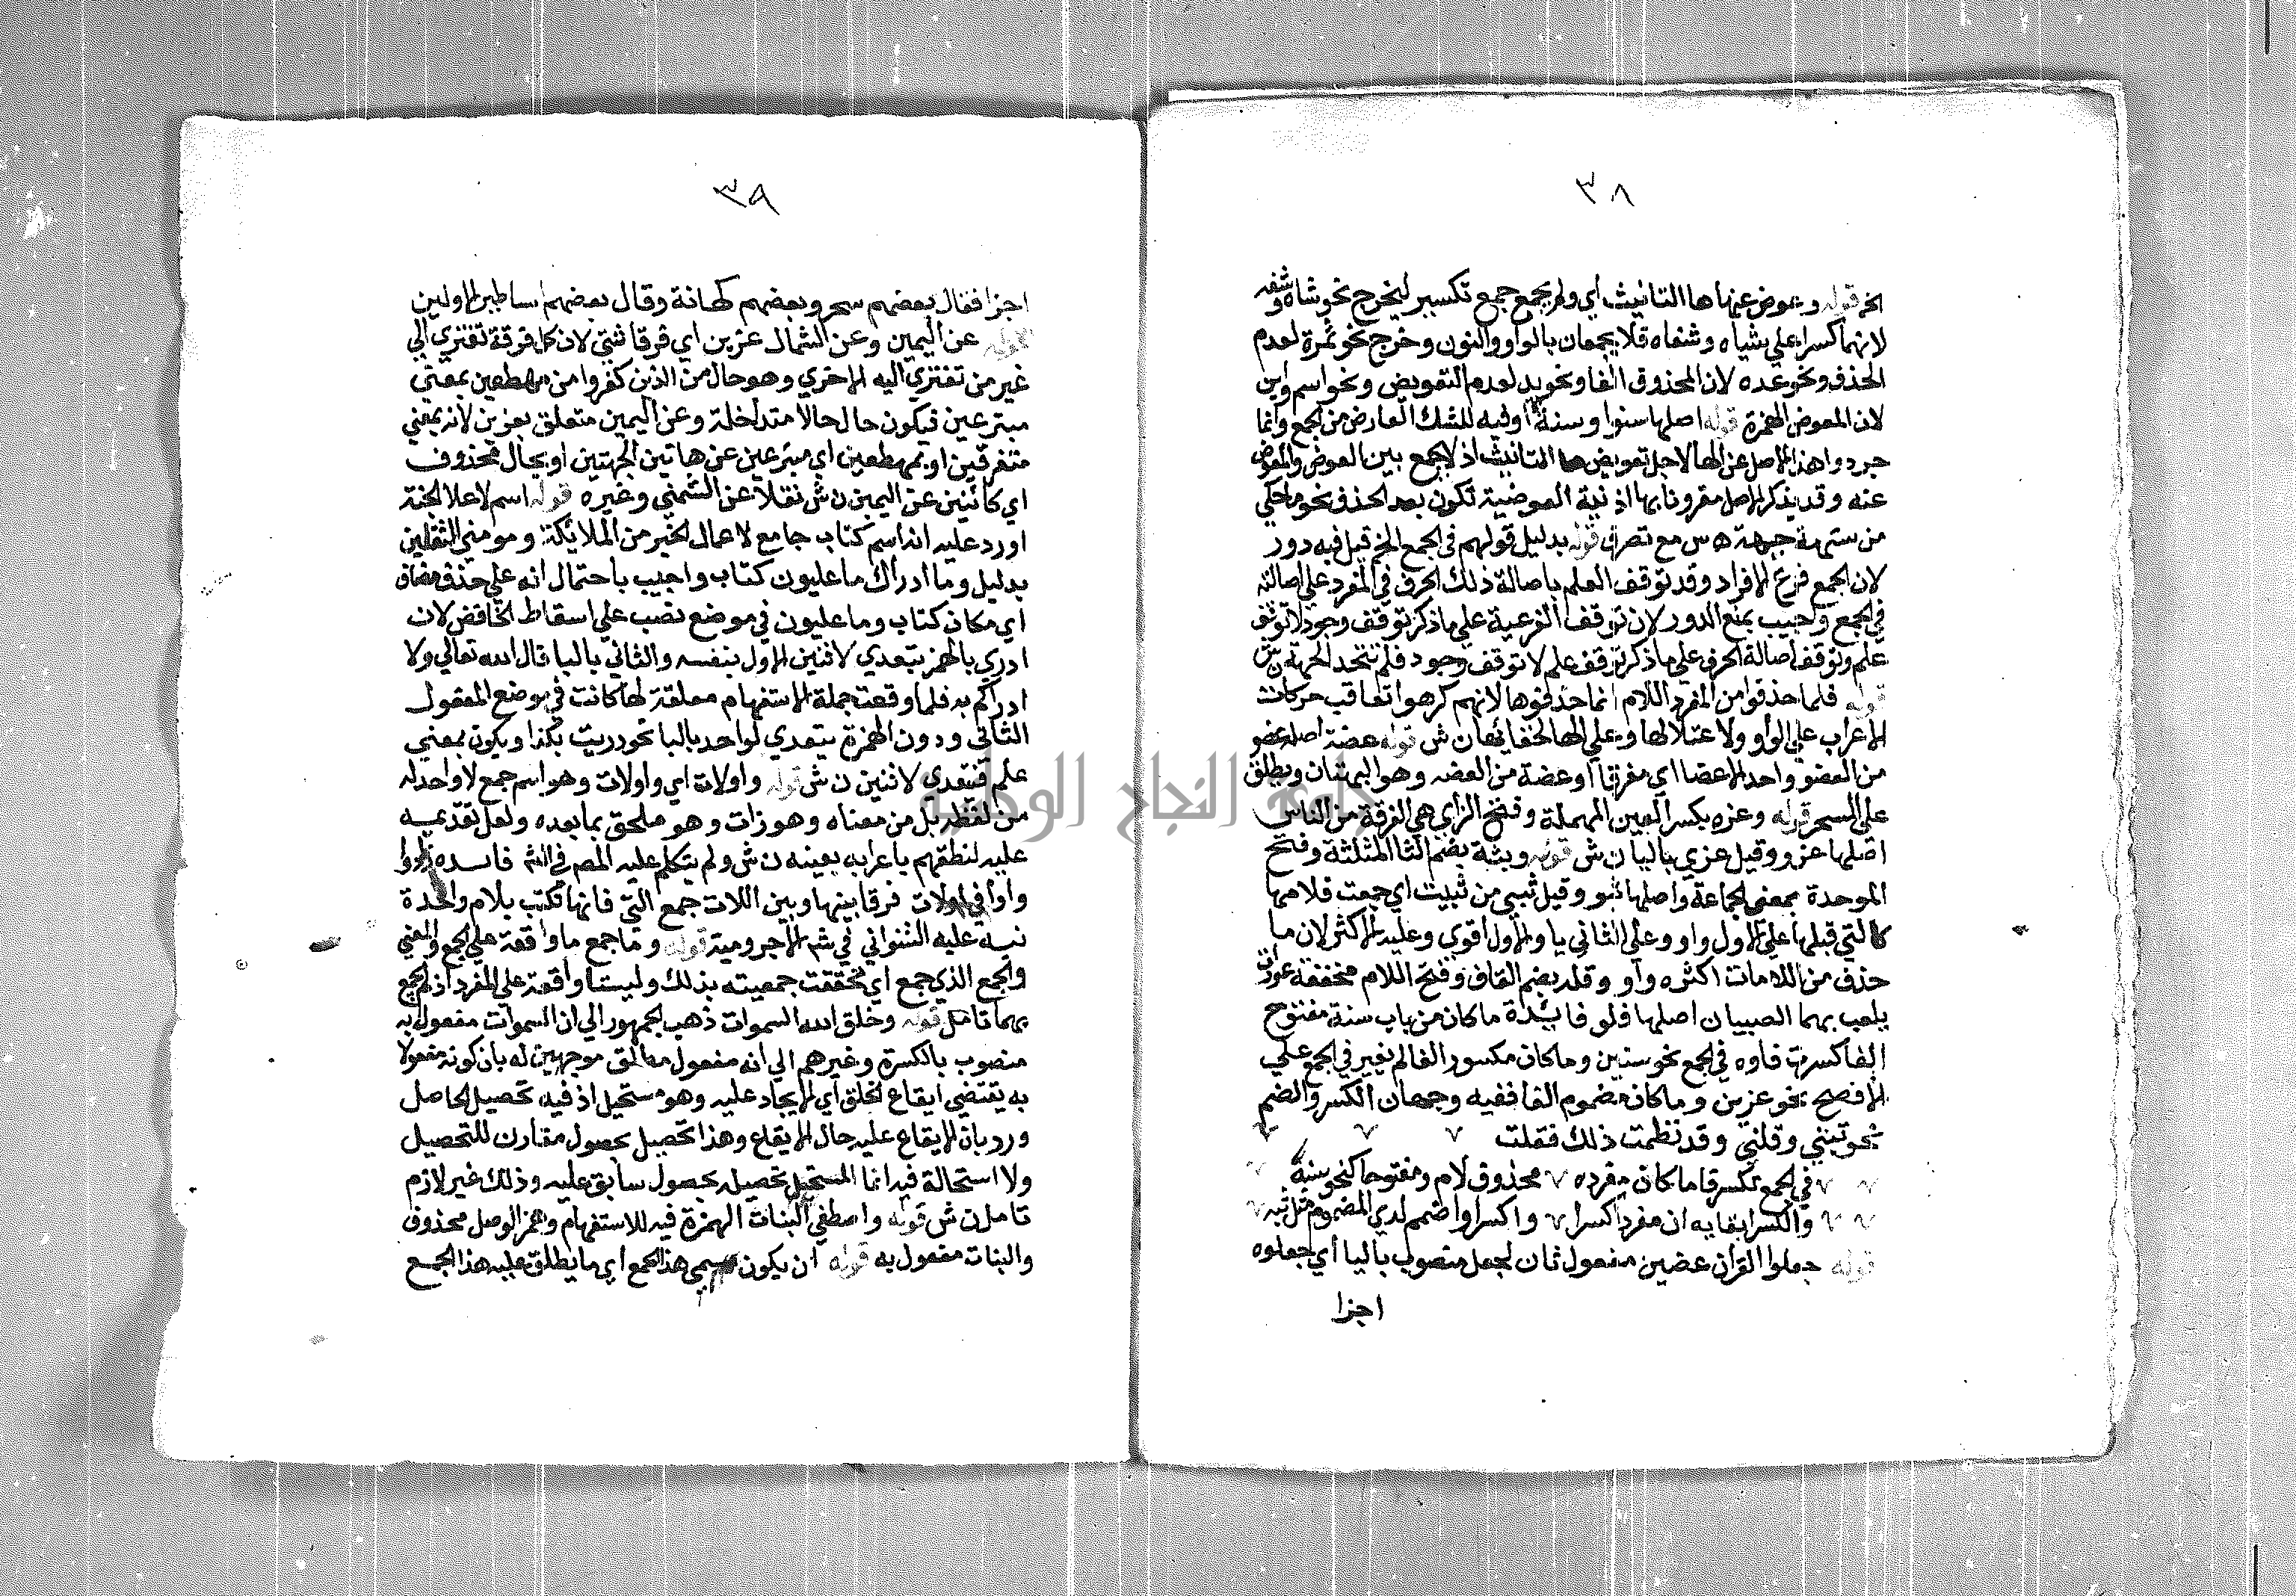 ٣٨
الخ قوله وعوض عنها ها التانيث اي ولم يجمع جمع تكسير ليخرج نحو شاه وشفه
لانهما كسرا علي شياه وشفاه فلا يجمعان بالواو والنون وخرج نحو تمرة لعدم
الحذف ونحو عده لان المحذوف الفا ونحو يد لعدم التعويض ونحو اسم وابن
لان المعوض الهمزة قوله اصلها سنو او سنة اوفيه للشك العارض من الجمع وانما
جردوا هذا الاصل عن الها لاجل تعويض ها التانيث اذ لا يجمع بين العوض والمعوض
عنه وقد يذكر الاصل مقرونا بها اذ نية العوضية تكون بعد الحذف نحو ما حكي
من سنهة جبهة ه س مع تصرف قوله بدليل قولهم في الجمع الخ قيل فيه دور
لان الجمع فرع الافراد وقد توقف العلم باصالة ذلك الحرف في المفرد علي اصالته
في الجمع واجيب بمنع الدور لان توقف الفرعية علي ما ذكر توقف وجود لا توقف
علم وتوقف اصالة الحرف علي ما ذكر توقف علم لا توقف وجود فلم تتحد الجهة ن ش
قوله فلما حذفوا من المفرد اللام انما حذفوها لانهم كرهوا تعاقب حركات
الاعراب علي الواو ولاعتلالها وعلي الها لخفائها ن ش قوله عضة اصله عضو
من العضو واحد الاعضا اي مفرقا او عضة من العضه وهو البهتان ويطلق
علي السحر قوله وعزه بكسر العين المهملة وفتح الزاي هي الفرقة من الناس
اصلها عزو وقيل عزي باليا ن ش قوله وثبة بضم الثا المثلثة وفتح
الموحدة بمعني الجماعة واصلها ثبو وقيل ثبي من ثبيت اي جمعت فلامها
كالتي قبلها علي الاول واو وعلي الثاني يا والاول اقوي وعليه الاكثر لان ما
حذف من اللامات اكثره واو وقله بضم القاف وفتح اللام مخففة عودان
يلعب بهما الصبيان اصلها قلو فائدة ما كان من باب سنة مفتوح
الفا كسرت فاوه في الجمع نحو سنين وما كان مكسور الفا لم يغير في الجمع علي
الافصح نحو عزين وما كان مضموم الفا ففيه وجهان الكسر والضم
نحو ثبين وقلين وقد نظمت ذلك فقلت
في الجمع تكسر فا ما كان مفرده محذوف لام ومفتوحا كنحو سنة
والكسر ابقا به ان مفرد اكسرا واكسرا واضمم لدي المضموم مثل ثبه
قوله جعلوا القران عضين مفعول ثان لجعل منصوب باليا اي جعلوه
اجزا
٣٩
اجزا فقال بعضهم سحر وبعضهم كهانة وقال بعضهم اساطير الاولين
قوله عن اليمين وعن الشمال عزين اي فرقا شتي لان كل فرقة تعتزي الي
غير من تعتزي اليه الاخري وهو حال من الذين كفروا من مهطعين بمعني
مسرعين فيكون حالا متداخلة وعن اليمين متعلق بعزين لانه بمعني
متفرقين او بمهطعين اي مسرعين عن هاتين الجهتين او بحال محذوف
اي كائنين عن اليمين ن ش نقلا عن الشمني وغيره قوله اسم لاعلا الجنة
اورد عليه انه اسم كتاب جامع لاعمال الخير من الملائكة ومومني الثقلين
بدليل وما ادراك ما عليون كتاب واجيب باحتمال انه علي حذف مضاف
اي مكان كتاب وما عليون في موضع نصب علي اسقاط الخافض لان
ادري بالهمز يتعدي لاثنين الاول بنفسه والثاني باليا قال الله تعالي ولا
ادراكم به فلما وقعت جملة الاستفهام معلقة لها كانت في موضع المفعول
الثاني ودون الهمزة يتعدي لواحد بالبا نحو دريت بكذا ويكون بمعني
علم فيتعدي لاثنين ن ش قوله واولات اي واولات وهو اسم جمع لا واحد له
من لفظه بل من معناه وهو ذات وهو ملحق بما بعده ولعل تقديمه
عليه لنطقهم باعرابه بعينه ن ش ولم يتكلم عليه المص في الشر فائده زادوا
واوا في اولات فرقا بينها وبين اللات جمع التي فانها تكتب بلام واحدة
نبه عليه الشنواني في شر الاجرومية قوله وما جمع ما واقعة علي الجمع والمعني
والجمع الذي جمع اي تحققت جمعيته بذلك وليست واقعة علي المفرد اذ لم يجمع
بهما تامل قوله وخلق الله السموات ذهب الجمهور الي ان السموات مفعول به
منصوب بالكسرة وغيرهم الي انه مفعول مطلق موجهين له بان كونه مفعولا
به يقتضي ايقاع الخلق اي الايجاد عليه وهو مستحيل اذ فيه تحصيل الحاصل
ورد بان الايقاع عليه حال الايقاع وهذا تحصيل بحصول مقارن للتحصيل
ولا استحالة فيه انما المستحيل تحصيله بحصول سابق عليه وذلك غير لازم
تامل ن ش قوله واصطفي البنات الهمزة فيه للاستفهام وهمز الوصل محذوف
والبنات مفعول به قوله ان يكون مسمي هذا الجمع اي ما يطلق عليه هذا الجمع
جامعة النجاح الوطنية